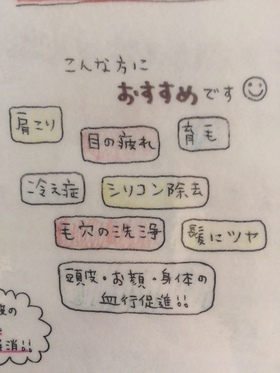 こんな方に
おすすめです
肩こり
目の疲れ
育毛
冷え症
シリコン除去
毛穴の洗浄
髪にツヤ
頭皮・お顔・身体の
血行促進!!
皮の
消!!